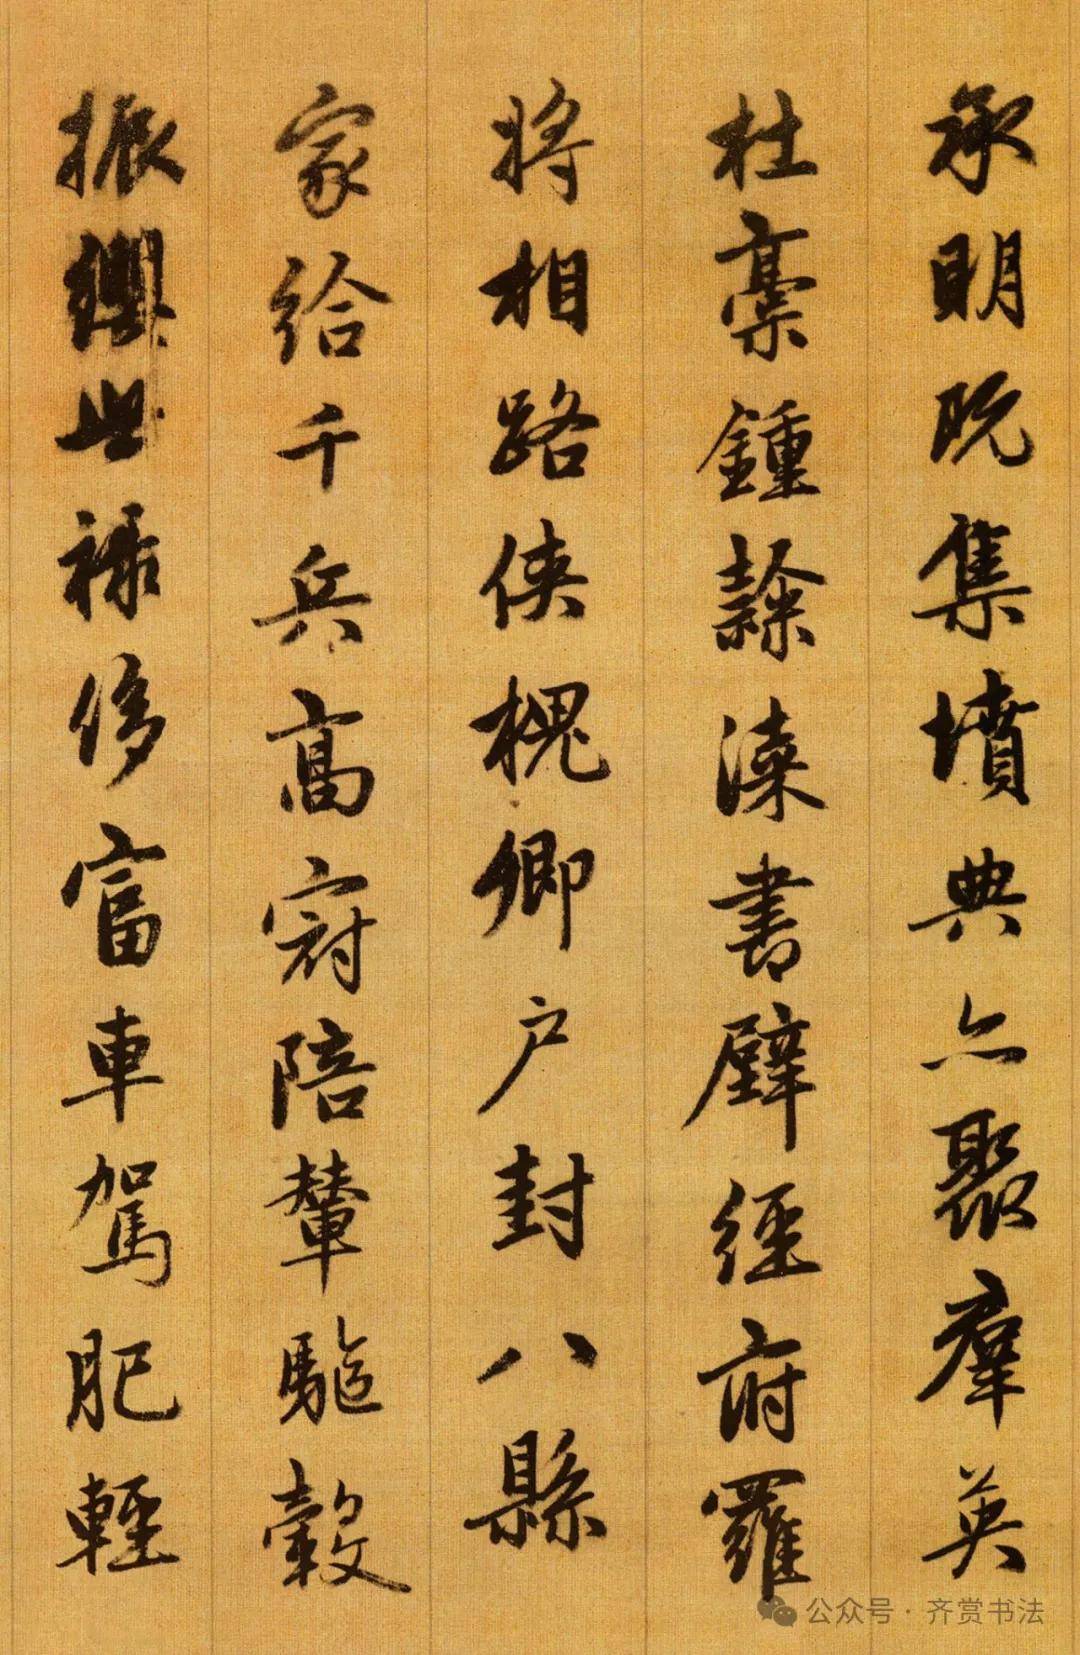 承明既集墳典亦聚羣英
杜稾鍾隸漆書壁經府羅
將相路俠槐卿户封八縣
家給千兵高冠陪輦驅轂
振纓世祿侈富車駕肥輕
公众号 · 齐赏书法